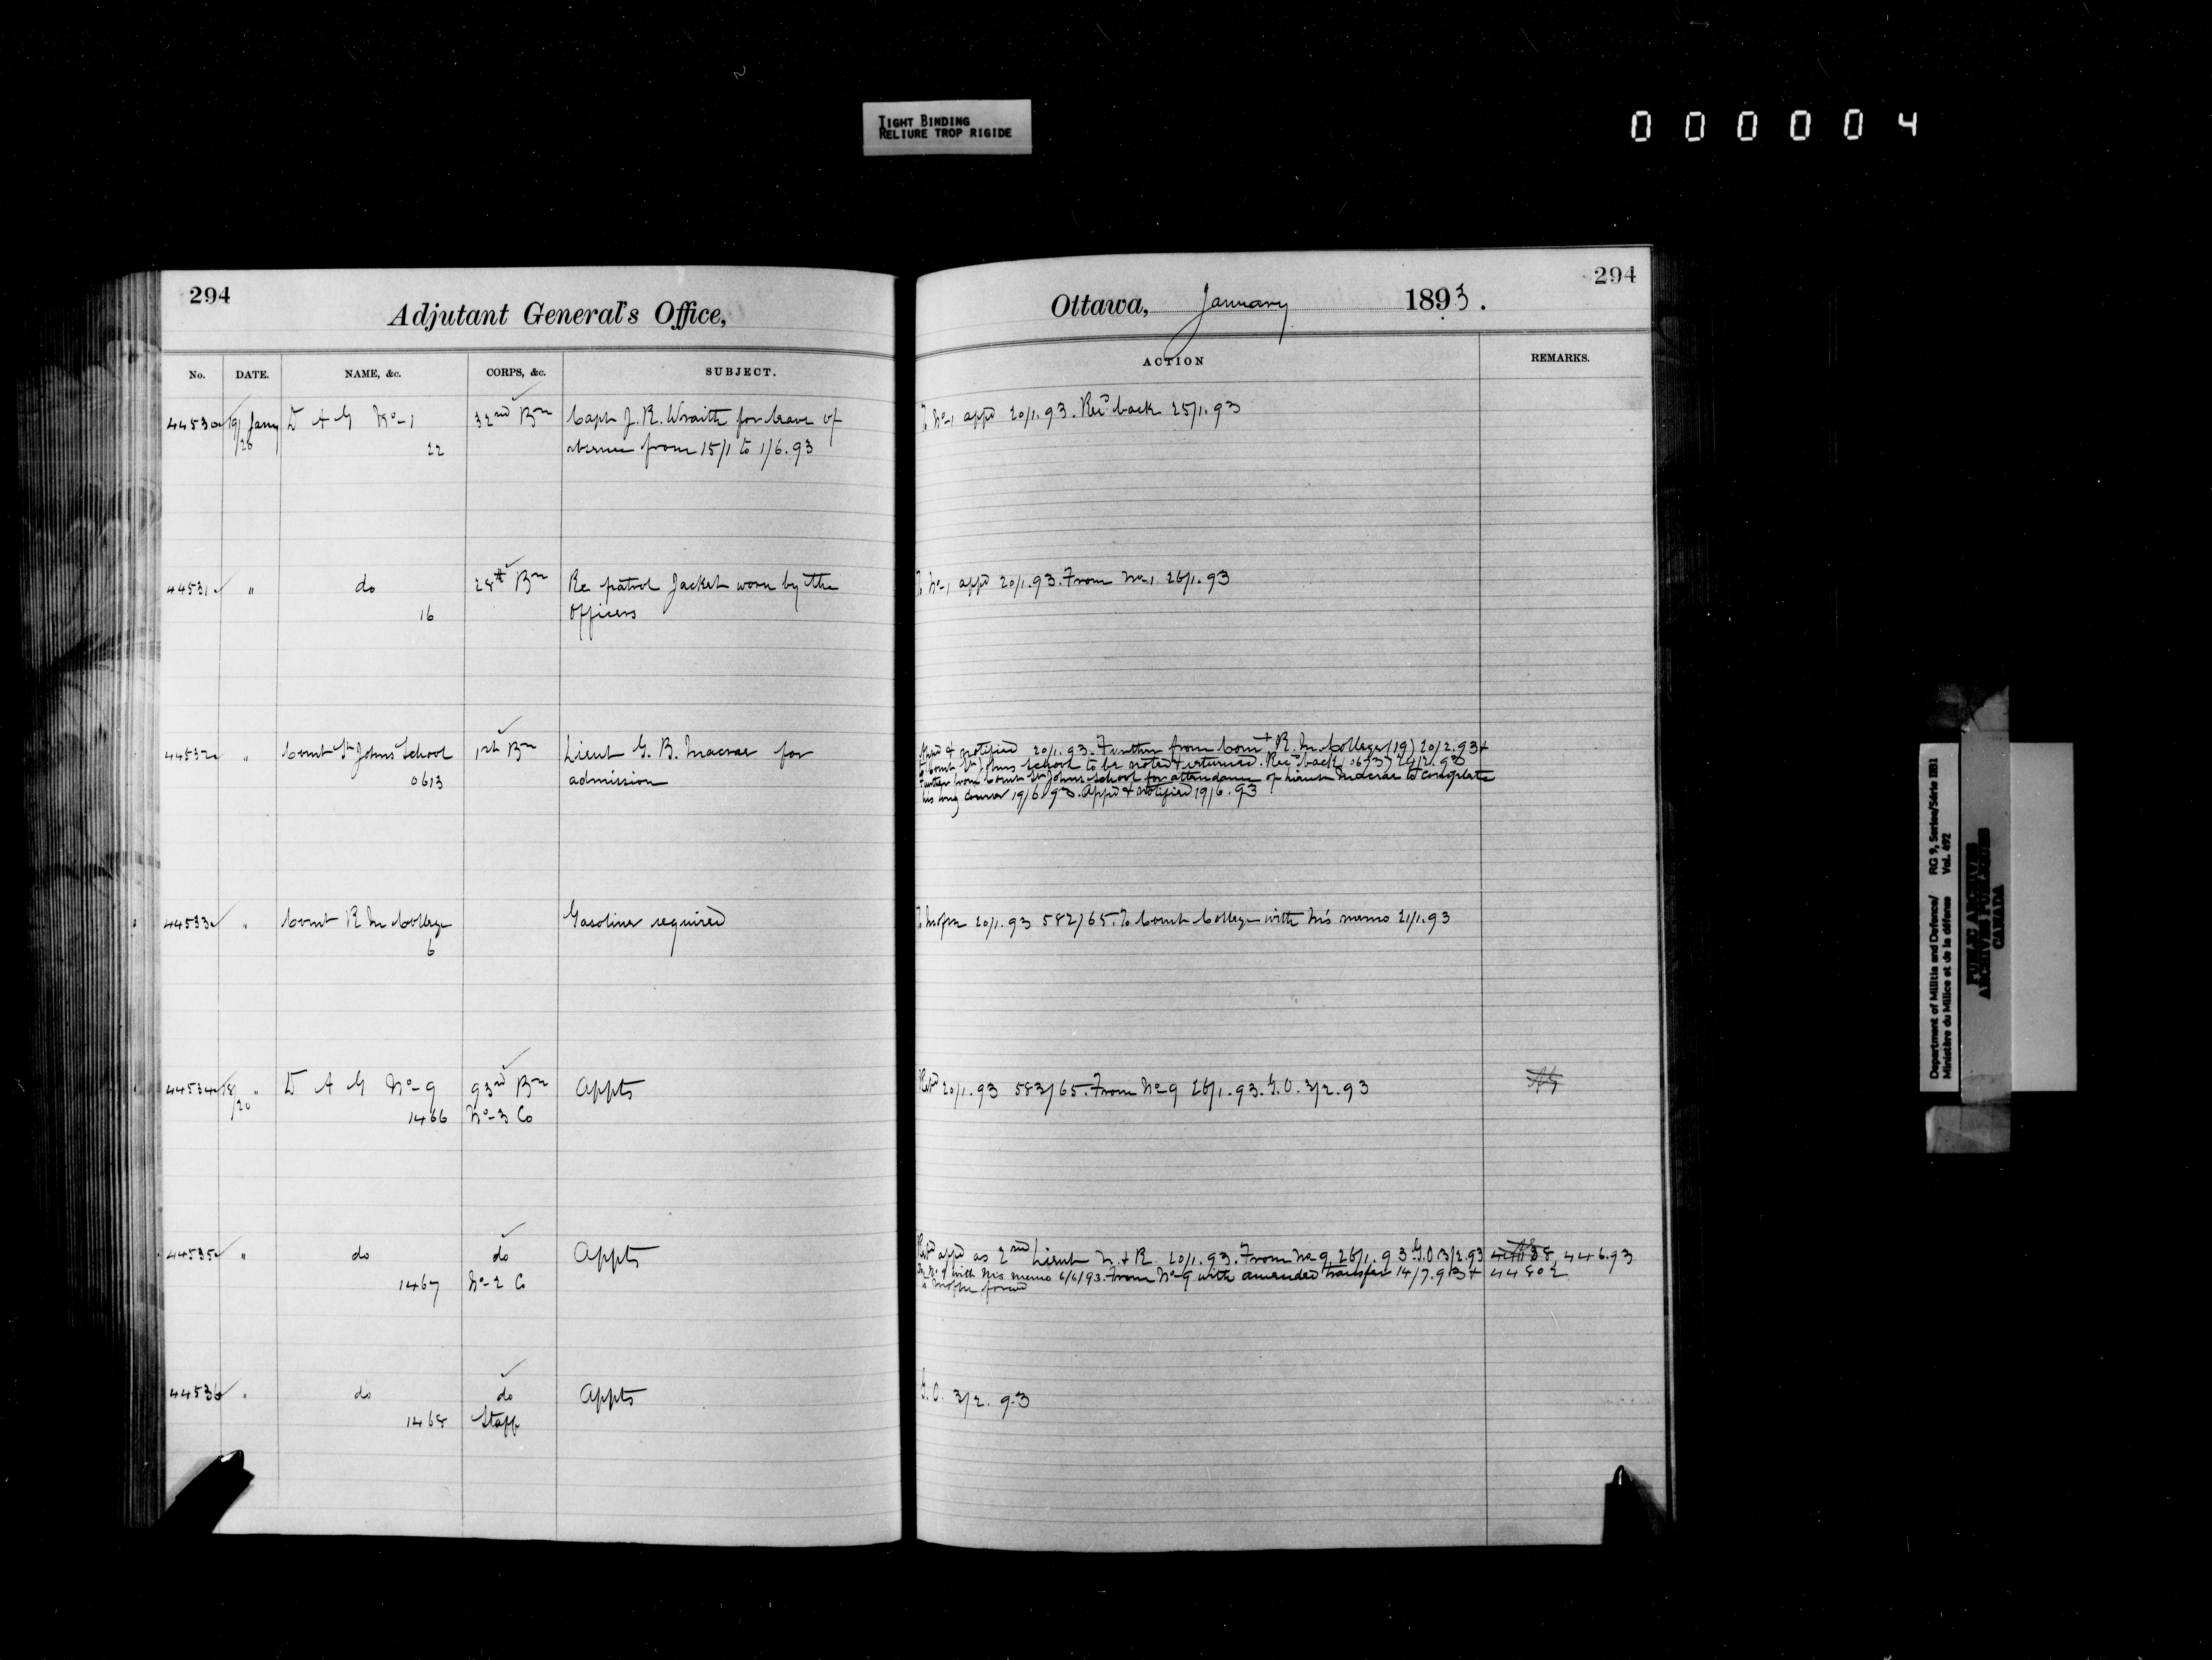 TIGHT BINDING
RELIURE TROP RIGIDE
000004
294
Adjutant General's Office,
No. DATE. NAME, &c. CORPS, &c. SUBJECT.
44530 19/1 Jany D A G No-1 32nd Bn Capt J. R. Wraith for leave of
/20 22 absence from 15/1 to 1/6.93
44531 " do 28th Bn Re patrol Jacket worn by the
16 Officers
44532 " Comt St Johns School Bn Lieut G. B. Macrae for
0613 admission
44533 " Comt R M College Gasolines required
6
44534 18/ " D A G No-9 93rd Bn Appts
/20 1466 No-3 Co
44535 " do do Appts
1467 No-2 Co
44536 " do do Appts
1468 Staff
294
Ottawa, January 1893.
ACTION REMARKS.
To No-1 appd 20/1.93. Recd back 25/1.93
To No-1 appd 20/1.93. From No-1 26/1.93
Appd & notified 20/1.93. Further from Comt R. M. College (19) 20/2.93 &
to Comt St Johns School to be noted & returned. Recd back 24/2.93
Further from Comt St Johns School for attendance of Lieut Macrae to complete
his long course 19/6.93. Appd & notified 19/6.93
20/1.93 582/65. To Comt College with M's memo 21/1.93
20/1.93 583/65. From No-9 26/1.93. G.O. 3/2.93
appd as 2nd Lieut 20/1.93. From No-9 26/1.93 G.O. 3/2.93 446.93
To No-9 with M's memo 6/6/93. From No-9 with amended transfer 14/7.93 &
G.O. 3/2.93
Department of Militia and Defence/ RG 9, Series/Série IIB1
Ministère du Milice et de la défense Vol. 492
PUBLIC ARCHIVES
ARCHIVES PUBLIQUES
CANADA